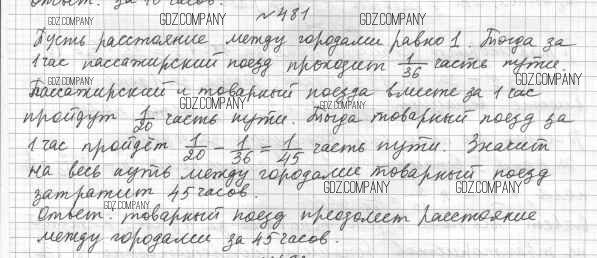 Ответ: за 40 часов.
№481
Пусть расстояние между городами равно 1. Тогда за
1 час пассажирский поезд проходит 1/36 часть пути.
Пассажирский и товарный поезда вместе за 1 час
пройдут 1/20 часть пути. Тогда товарный поезд за
1 час пройдёт 1/20 - 1/36 = 1/45 часть пути. Значит
на весь путь между городами товарный поезд
затратит 45 часов.
Ответ: товарный поезд преодолеет расстояние
между городами за 45 часов.
GDZ.COMPANY
GDZ.COMPANY
GDZ.COMPANY
GDZ.COMPANY
GDZ.COMPANY
GDZ.COMPANY
GDZ.COMPANY
GDZ.COMPANY
GDZ.COMPANY
GDZ.COMPANY
GDZ.COMPANY